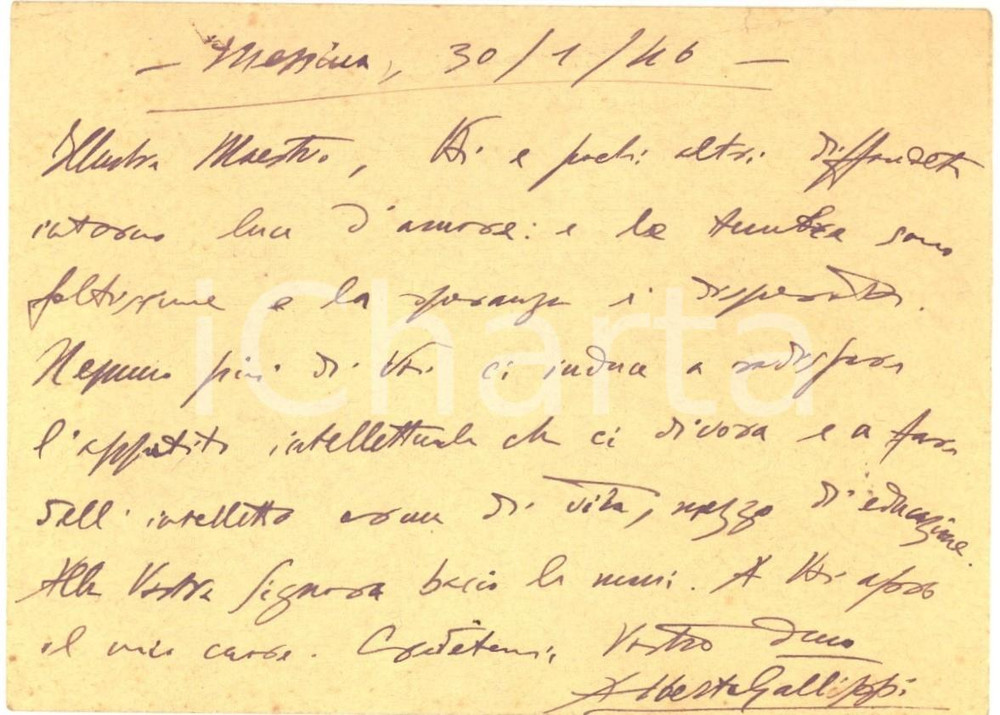 – Messina, 30/1/46 –
Illustre Maestro, Voi e pochi altri diffondete
intorno luce d'amore: e le tenebre sono
foltissime e la speranza è disperata.
Nessuno più di Voi ci induce a sodisfare
l'appetito intellettuale che ci divora e a fare
dell'intelletto arma di vita, mezzo di educazione.
Alla Vostra Signora bacio le mani. A Voi apro
il mio cuore. Credetemi, Vostro dmo
Alberto Gallippi
iCharta